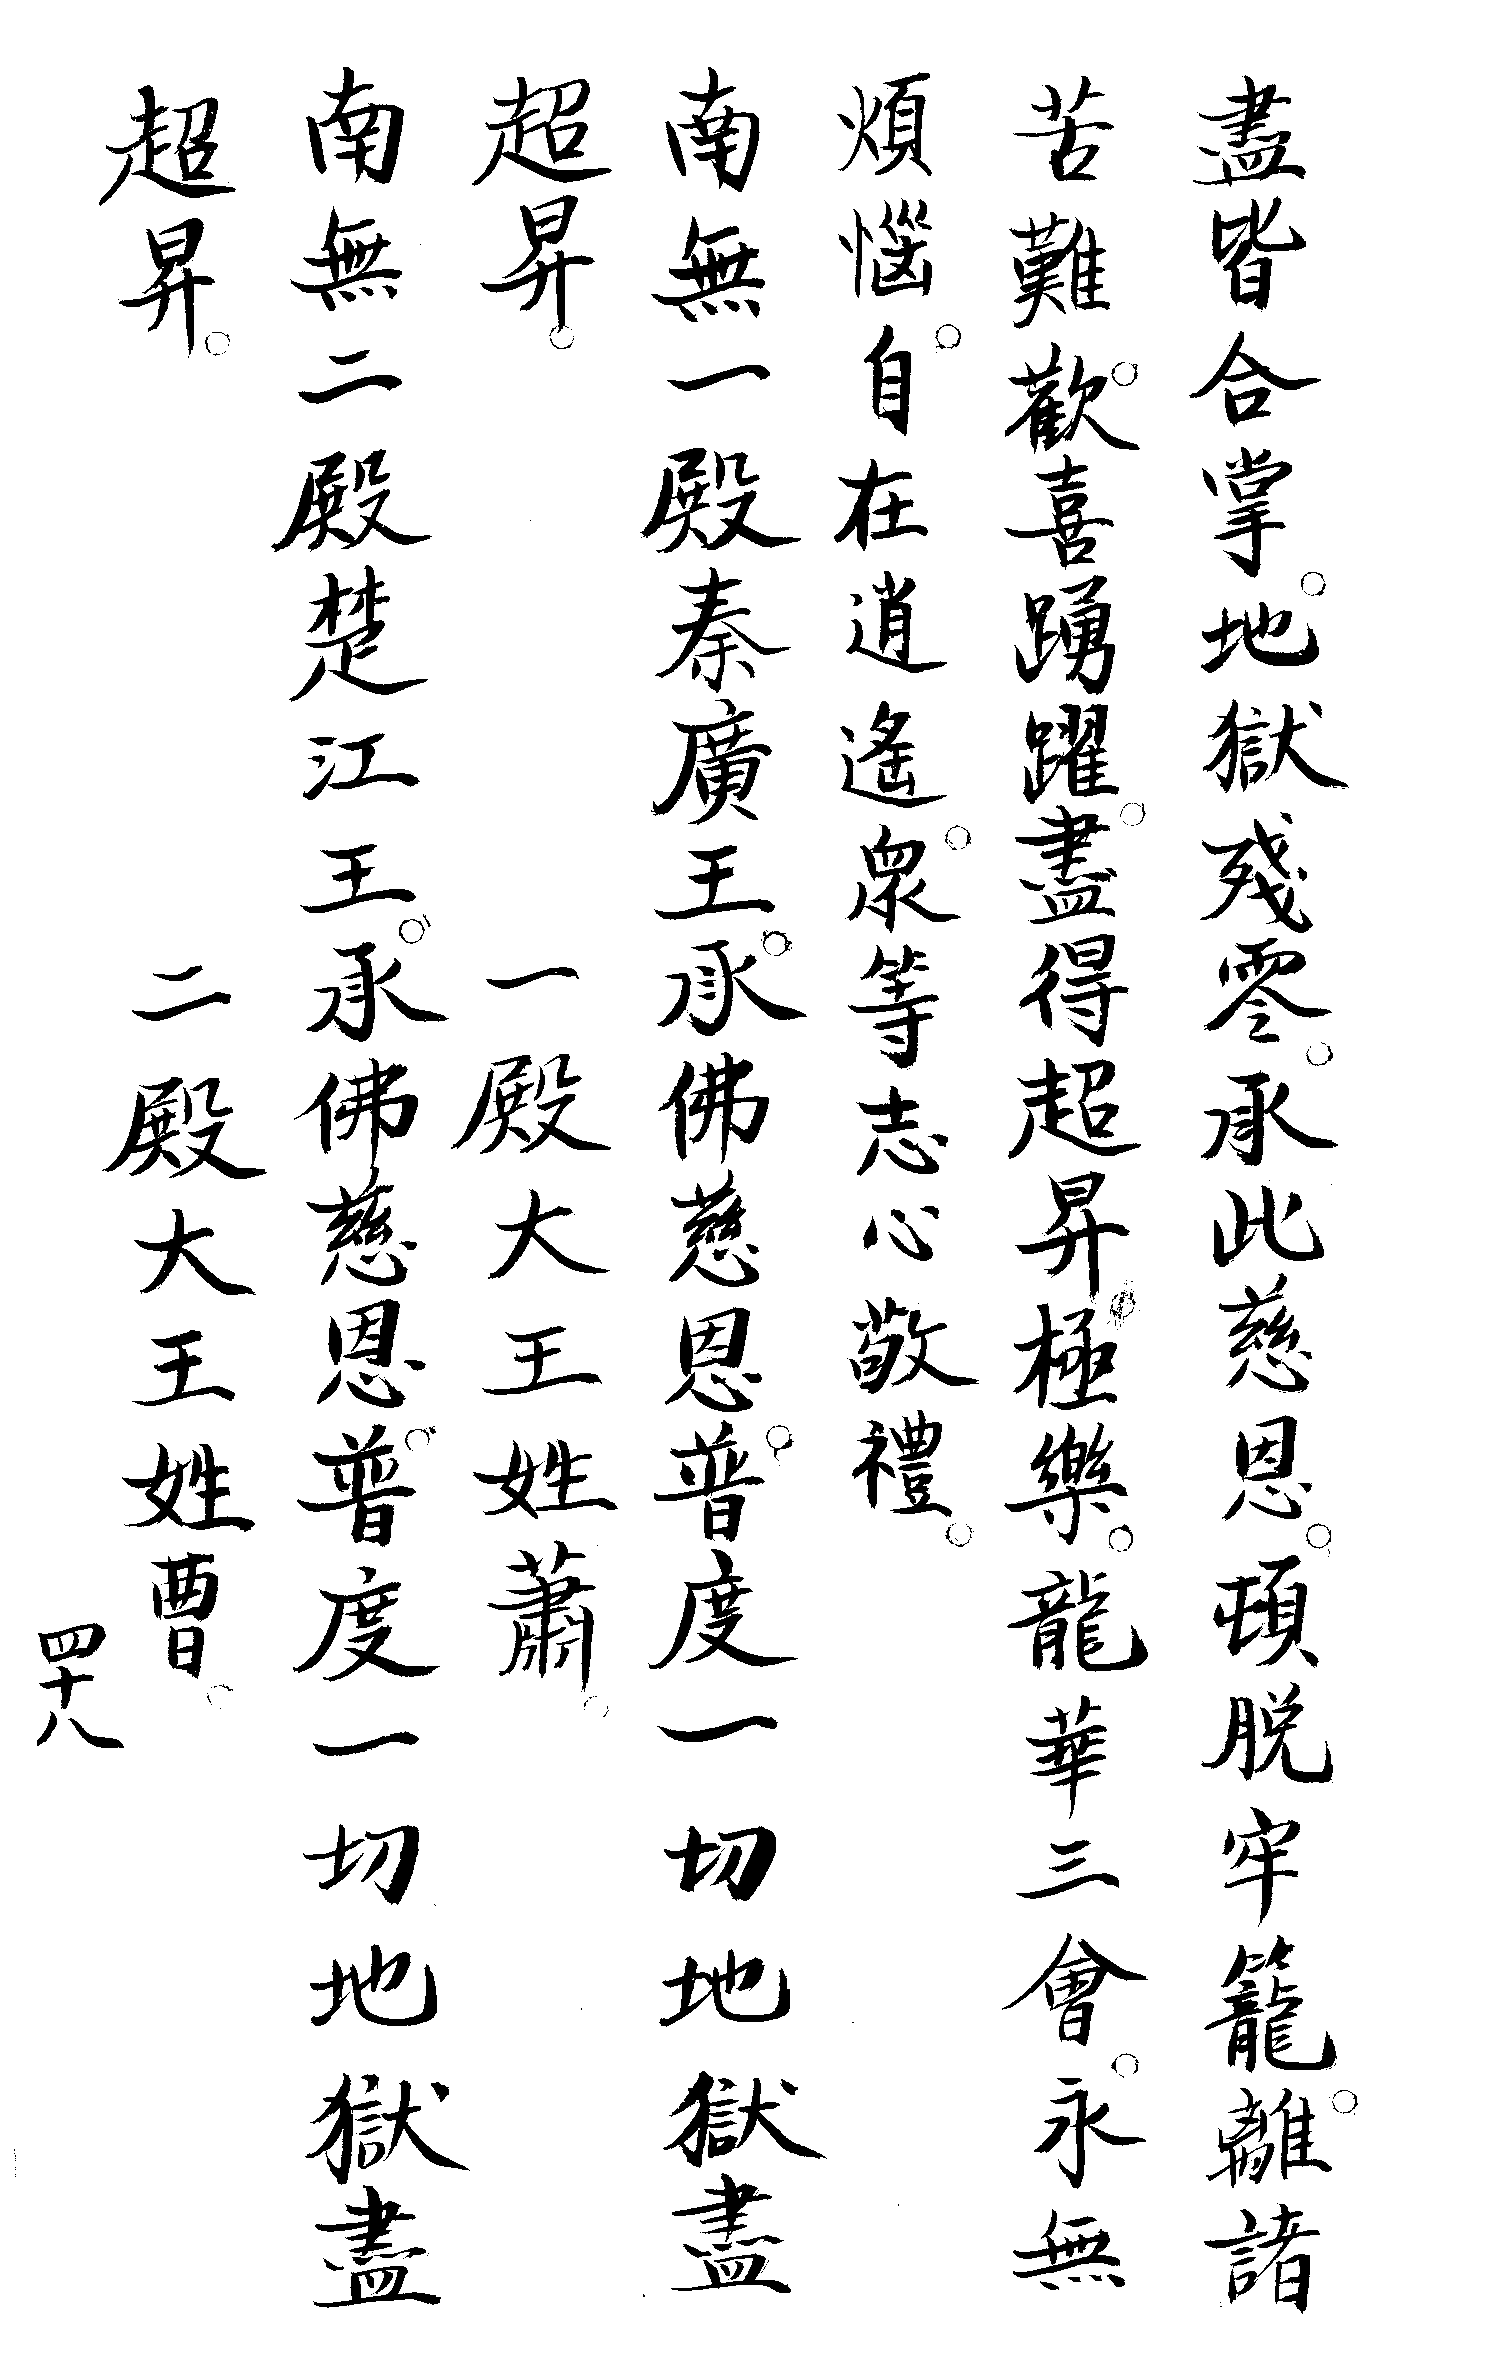 盡皆合掌。地獄殘零。承此慈恩。頓脫牢籠。離諸
苦難。歡喜踴躍。盡得超昇。極樂。龍華三會。永無
煩惱。自在逍遙。眾等志心敬禮。
南無一殿秦廣王。承佛慈恩。普度一切地獄盡
超昇。　一殿大王姓蕭。
南無二殿楚江王。承佛慈恩。普度一切地獄盡
超昇。　二殿大王姓曹。
四十八